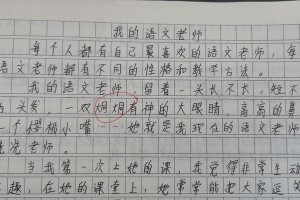 我的语文老师
每个人都有自己最喜欢的语文老师，每
语文老师都有不同的性格和教学方法。
我的语文老师，留着一头不长，短不
的头发，一双炯炯有神的大眼睛，高高的鼻
一个樱桃小嘴……她就是我现在的语文老师
老师。
当我第一次上她的课，我觉得非常生动
趣，在她的课堂上，她常常能把大家逗笑